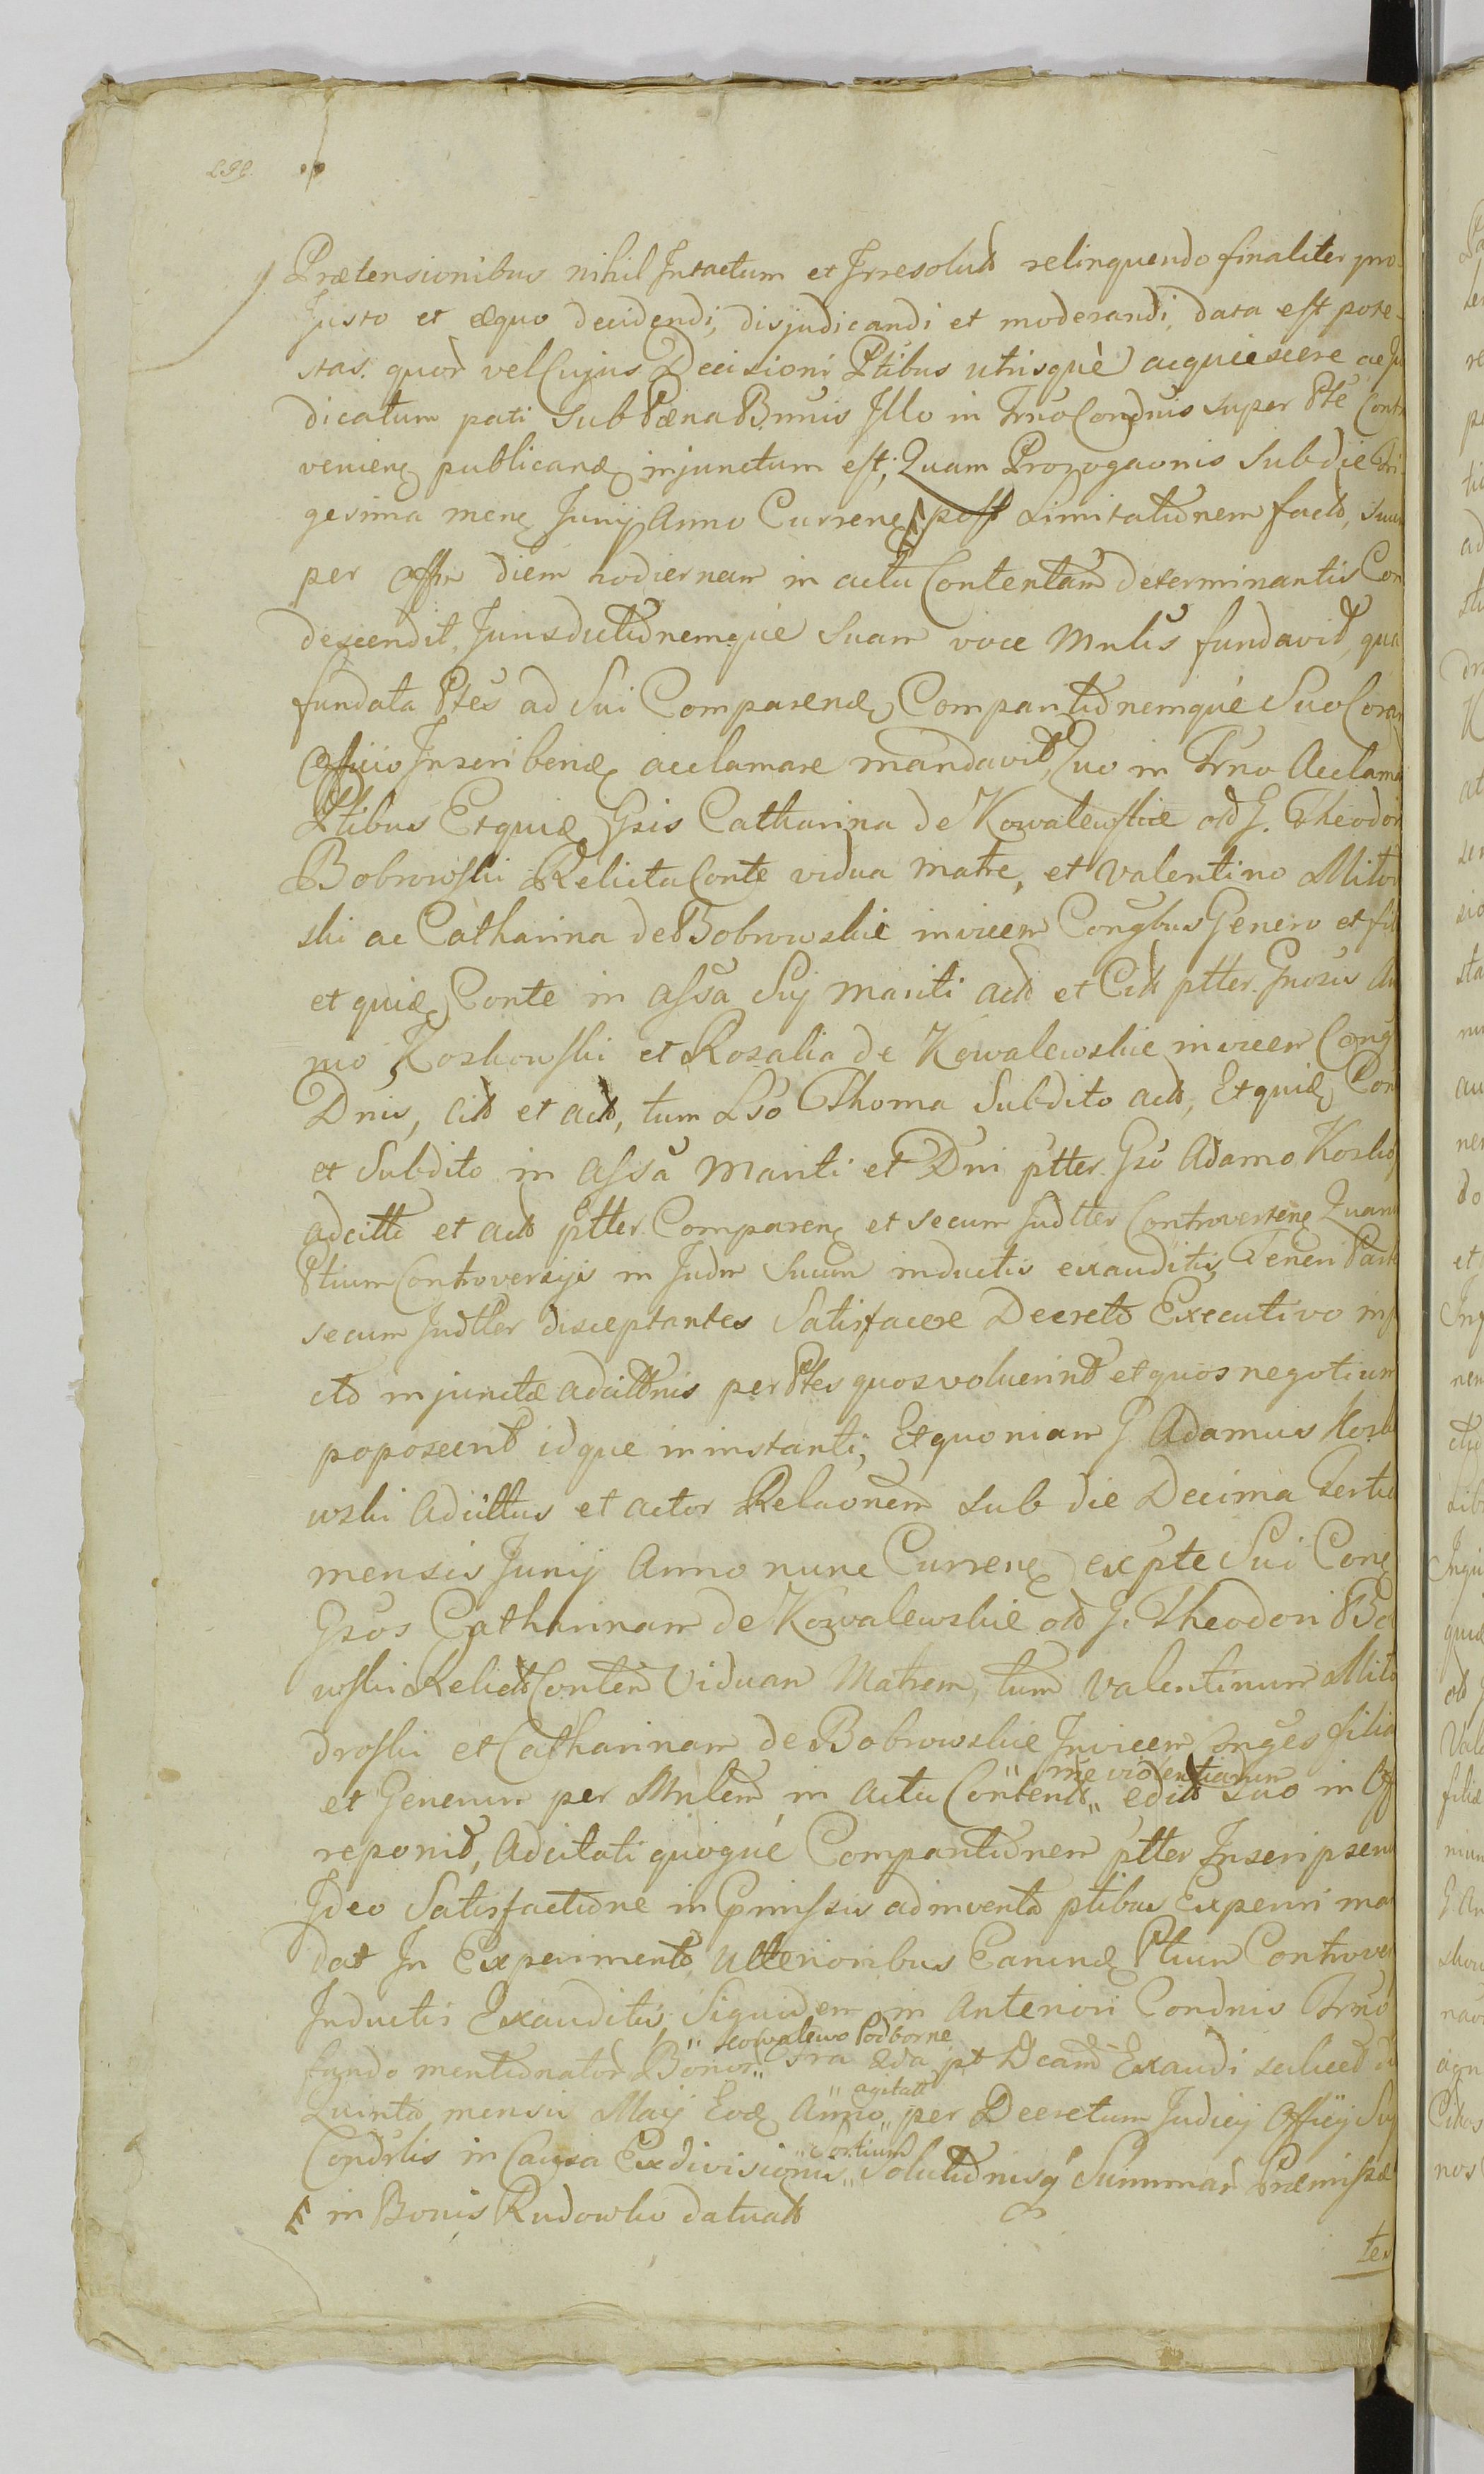 Prætensionibus nihil Intactum et Irresolut relinquendo finaliter pro
Justo et æquo decidendi, disjudicandi et moderandi, data est pote-
stas. quor vel Cujus Decisioni Ptibus utrisque acquiescere ac Ju
dicatum pati sub Pæna Bmnis Illo in Trno Condnis super Pte Contr
venien publicand injunctum est; Quam Prorogaonis sub die Tri
gesima mens Junij Anno Curren post Limitationem fact, suum
per diem hodiernam in actu Contentam determinantis Con
descendit, Jurisdictionemque Suam voce Mnlis fundavit, qua
fundata Ptes ad Sui Comparend Comparitionemque Suo Coram
Officio Inscribend acclamare mandavit, Quo in Trno Acclam
Ptibus Et quid Gsis Catharina de Kowalewskie old G. Theodor
Bobrowski Relicta Conte vidua matre, et Valentino Mito
ski ac Catharina de Bobrowskie invicem Congbus Genero et fil
et quid Conte in assa Sui mariti act et Cit ptter. Gnosis
mo Koskowski et Rozalia de Kowalewskie invicem Cong
Dnis, cit et act, tum Lso Thoma Subdito act, Et quid Con
et Subdito in assa Mariti et Dni ptter. Gso Adamo Kosko
adcitti et act ptter Comparen et secum Judtter Controverten Quan
Ptium Controversijs in Judm Suum inductis exauditis, Teneri Part
secum Judtter disceptantes Satisfacere Decreto Executivo
injunctæ adcittnis per Ptes quos voluerint et quos negotium
poposcerit idque in instanti; Et quoniam G. Adamus Kosko
wski Adcittus et actor Relaonem sub die Decima Tertia
mensis Junij Anno nunc Curren ex pte Sui Con
Gsos Catharinam de Kowalewskie old G. Theodori Bo
wski Relict Conten Viduam Matrem, tum Valentinum Mito
droski et Catharinam de Bobrowskie Invicem Inges filia
me violentiarum
et Generum per Mnlem in actu Content edit suo in Off
reponit, Adcitati quoque Comparitionem ptter Inscripser
Ideo Satisfactione in Pmissis adinventa ptibus Experiri man
dat In Experimento Ulterioribus Earund Ptium Controver
Inductis Exauditis, Siquidem in Anteriori Condnis Trno
Kowalewo Podborne
fundo mentionator Bonor Fra Qda pt Dcam Exaudi scilicet
agitatt
Quinta mensis Maij Eod Anno per Decretum Judicij Officij Sui
Sortium
Condrlis in Causa Exdivisionis Solutionisq Summar Præmissæ
in Bonis Rudowko datuatt
tes